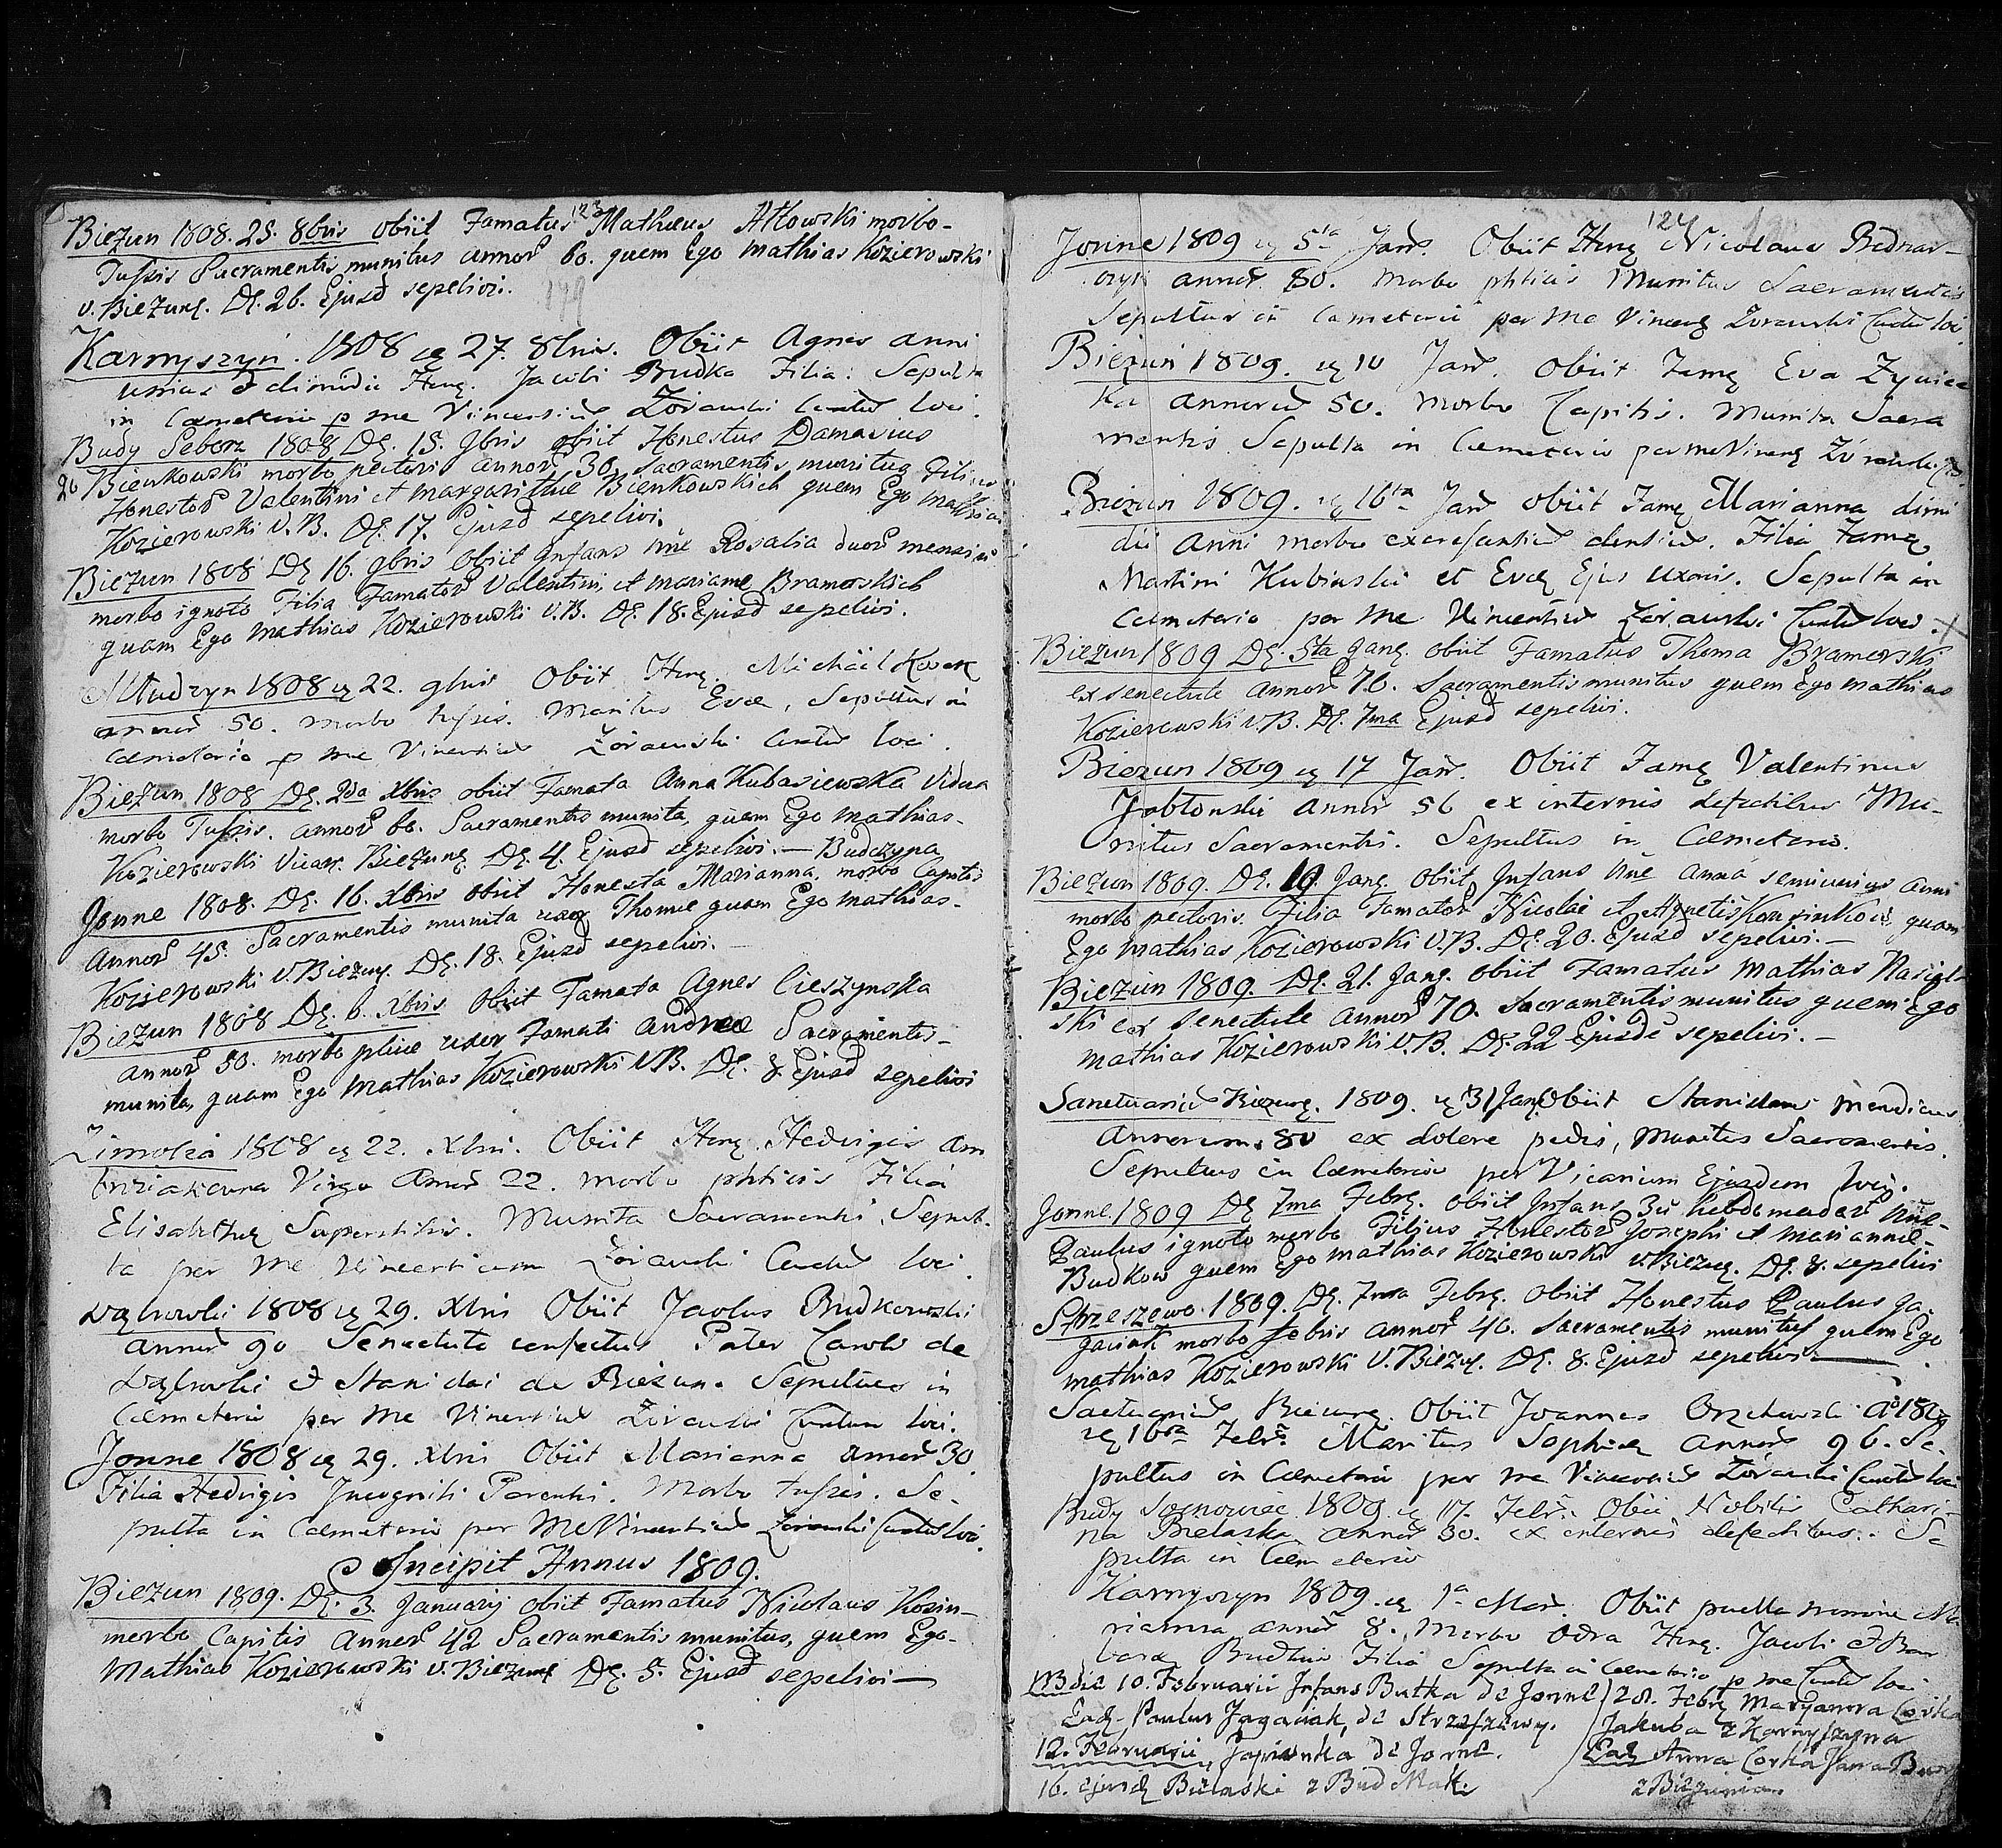 123
Bieżun 1808. 25. 8bris obiit Famatus Mathæus Atłowski morbo
Tussis Sacramentis munitus annor 60. quem Ego Mathias Kozierowski
v. Bieżunę. Dę. 26. Ejusd sepelivi.
179
Karnyszyń. 1808 ię 27. 8bris. Obiit Agnes anni
unius & dimidii Hnę. Jacobi Brudka Filia. Sepulta
in Cæmeterio p me Vincentiu Zórawski Curatu loci.
Budy Seborz 1808 Dę. 15. 9bris obiit Honestus Damasius
26 Bienkowski morbo pectoris annor 30. Sacramentis munitus Filius
Honestor Valentini et Margarithæ Bienkowskich quem Ego Mathias
Kozierowski V.B. Dę. 17. Ejusd sepelivi.
Bieżun 1808 Dę 16. 9bris obiit Infans nñe Rosalia duor mensiu
morbo ignoto Filia Famator Valentini, et Mariannę Bramorskich
quam Ego Mathias Kozierowski V.B. Dę. 18. Ejusd sepelivi.
Mludzyn 1808 ię 22. 9bris Obiit Hnę. Michäel Kosek
annor 50. morbo tussis. Maritus Evæ, Sepultus in
Cæmeterio p me Vincentiu Zórawski Curatu loci.
Bieżun 1808 Dę. 2da Xbris obiit Famata Anna Kubasiewska Vidua
morbo Tussis. annor 60. Sacramentis munita, quam Ego Mathias
Kozierowski Vicar. Bieżunę. Dę. 4. Ejusd sepelivi. — Budczyna
Jonne 1808. Dę. 16. Xbris obiit Honesta Marianna. morbo Capitis
Annor 45. Sacramentis munita uxor Thomæ quam Ego Mathias
Kozierowski V. Bieżuę. Dę. 18. Ejusd sepelivi. —
Bieżun 1808 Dę. 6. Xbris obiit Famata Agnes Cieszynska
annor 50. morbo uxor Famati Andreæ Sacramentis
munita, quam Ego Mathias Kozierowski V.B. Dę. 8. Ejusd sepelivi
1808 ię 22. Xbris. Obiit Hnę. Hedvigis Am
broziakowna Virgo Annor 22. morbo phtisis Filia
Elisabethæ Superstitis. Munita Sacramentis, Sepul-
ta per me Vincentium Zórawski Curatu loci.
Dąbrowki 1808 ię 29. Xbris Obiit Jacobus Brudkowski
annor 90 Senectute confectus Pater Caroli de
Dąbrowki & Stanislai de Bieżun. Sepultus in
Cæmeterio per me Vincentiu Zórawski Curatum loci.
Jonne 1808 ię 29. Xbris Obiit Marianna annor 30.
Filia Hedvigis Incogniti Parentis. Morbo tussis. Se-
pulta in Cæmeterio per me Vincentiu Zórawski Curatu loci.
Incipit Annus 1809.
Bieżun 1809. Dę. 3. Januarij obiit Famatus Nicolaus Kozin-
morbo Capitis Annor 42 Sacramentis munitus, quem Ego
Mathias Kozierowski V. Bieżunę Dę. 5. Ejusd sepelivi —
124
Jonne 1809 ię 5ta Janr. Obiit Hnę Nicolaus Bednar-
czyk annor 80. morbo phtisis Munitus Sacramentis
Sepultus in Cæmeterio per me Vincenę Zórawski Curatu loci.
Bieżun 1809. ię 10 Janr. Obiit Famę Eva Zywiec
ka annoru 50. morbo Capitis. Munita Sacra
mentis Sepulta in Cæmeterio per me Vincenę Zórawski
Bieżun 1809. ię 16ta Janr obiit Famę Marianna dimi
dii anni morbo excrescentiu dentiu. Filia Famę
Martini Kubinski et Evæ Ejus Uxoris. Sepulta in
Cæmeterio per me Vincentiu Zórawski Curatu loci. X
Bieżun 1809 Dę. 5ta Janę. obiit Famatus Thoma Bramorski
ex senectute annor 76. Sacramentis munitus quem Ego Mathias
Kozierowski V.B. Dę. 7ma Ejusd sepelivi.
Bieżun 1809 ię 17 Janr. Obiit Famę Valentinus
Jabłonski annor 56 ex internis defectibus Mu-
nitus Sacramentis. Sepultus in Cæmeterio.
Bieżun 1809. Dę. 19. Janę. obiit Infans nñe Anna semiunius anni
morbo pectoris. Filia Famator Nicolai et Agnetis quam
Ego Mathias Kozierowski V.B. Dę. 20. Ejusd sepelivi. —
Bieżun 1809. Dę. 21. Janę. obiit Famatus Mathias
ski ex senectute annor 70. Sacramentis munitus quem Ego
Mathias Kozierowski V.B. Dę. 22 Ejusde sepelivi. —
Sanctuariu Bieżunę. 1809. ię 31 Janr. Obiit Stanislaus mendicus
Annorum. 80 ex dolore pedis, Munitus Sacramentis.
Sepultus in Cæmeterio per Vicarium Ejusdem loci.
Jonne. 1809 Dę 7ma Febrę. obiit Infans 3u hebdomadar nñe
Paulus ignoto morbo Filius Honestor Josephi et Mariannæ
Budkow quem Ego Mathias Kozierowski v. Bieżuę. Dę. 8. sepelivi
Strzeszewo. 1809. Dę. 7ma Febrę. obiit Honestus Paulus Ja-
gaciak morbo febris annor 40. Sacramentis munitus quem Ego
Mathias Kozierowski V. Bieżuę. Dę. 8. Ejusd sepelivi. —
Bieżunę. Obiit Joannes Orzchowski Ao 1809
ię 16ta Febr. Maritus Sophiæ Annor 96. Se-
pultus in Cæmeterio per me Vincentiu Zórawski Curatu loci
Budy Sosnowiec 1809. ię 17. Febr. Obii Nobilis Cathari-
na Bielaska annor 30. ex internis defectibus. Se
pulta in Cæmeterio
Karnyszyn 1809. ię 1a Mar. Obiit puella nomine Ma
rianna annor 8. Morbo Odra Hnę. Jacobi & Bar
baræ Filia Sepulta in Cæmeterio p me Curatu loci
NB die 10. Februarii Infans Butka de Jonne
Eadę. Paulus Jagaciak, de Strzeszewę.
12. Februarii, de Jonne.
16. ejusdę Bielaski z Bud Mak.
28. Febrę Maryanna Corka
Jakuba z Karnyszyna
Eadę Anna Corka Jana
z Bieżunia.